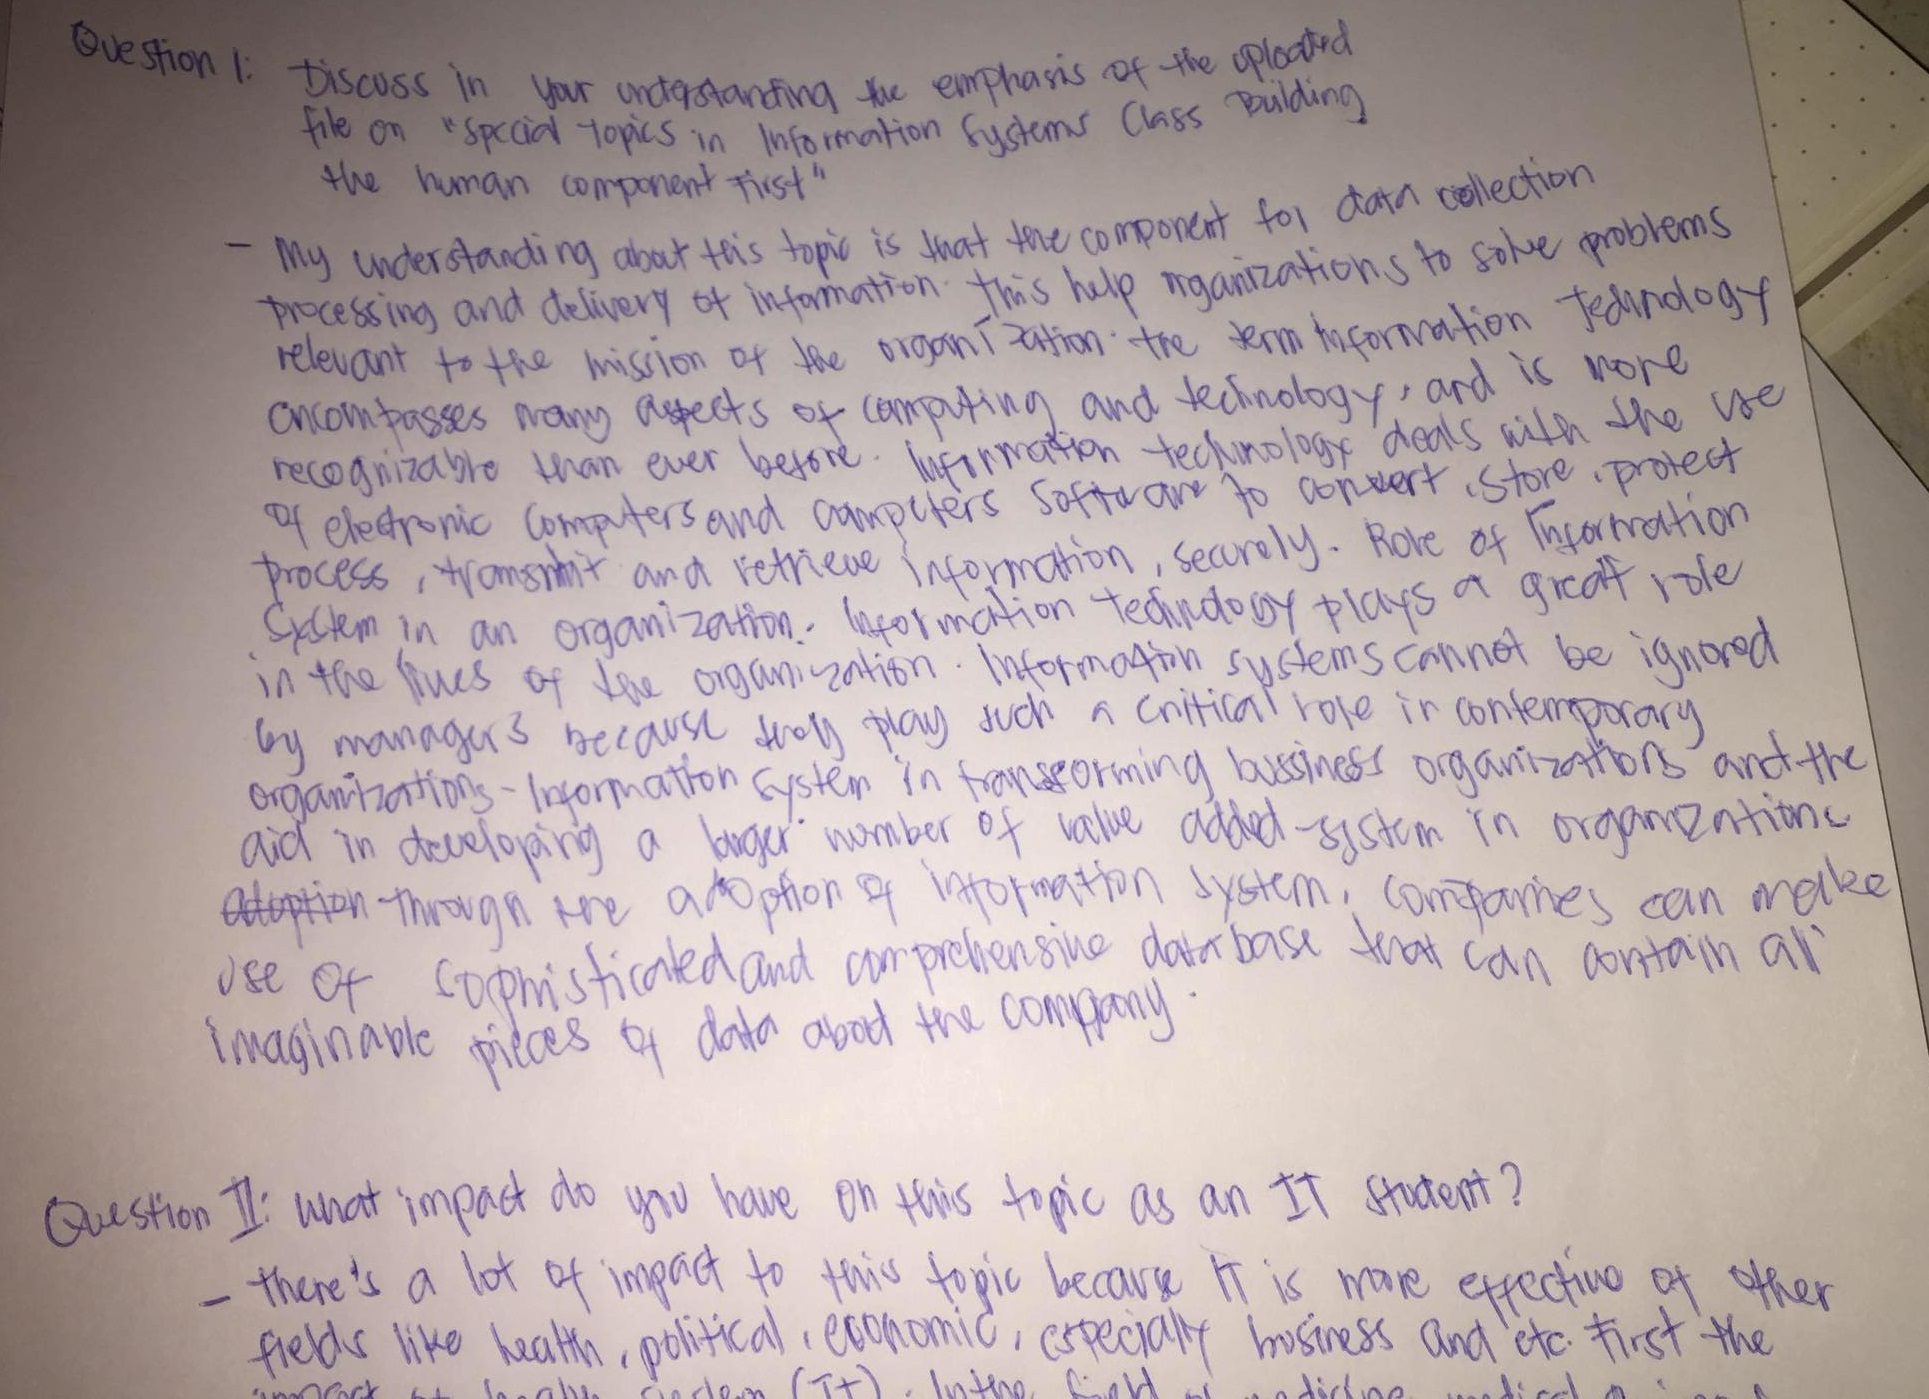 Question 1: Discuss in your understanding the emphasis of the uploaded
file on "special topics in Information Systems Class Building
the human component First"
- My understanding about this topic is that the component for data collection
processing and delivery of information. This help organizations to solve problems
relevant to the mission of the organization. the term Information Technology
encompasses many aspects of computing and technology, and is more
recognizable than ever before. Information technology deals with the use
of electronic computers and computers software to convert, store, protect
process, transmit and retrieve information, securely. Role of Information
System in an organization. Information technology plays a great role
in the lives of the organization. Information systems cannot be ignored
by managers because they play such a critical role in contemporary
organizations - Information system in transforming bussiness organizations and the
aid in developing a larger number of value added-system in organizations
adoption through the adoption of information system, companies can make
use of sophisticated and comprehensive database that can contain all
imaginable pieces of data about the company.
Question II: what impact do you have on this topic as an IT student?
- there's a lot of impact to this topic because IT is more effective of other
fields like health, political, economic, especially business and etc. First the
impact of health system (IT). In the field of medicine, medical